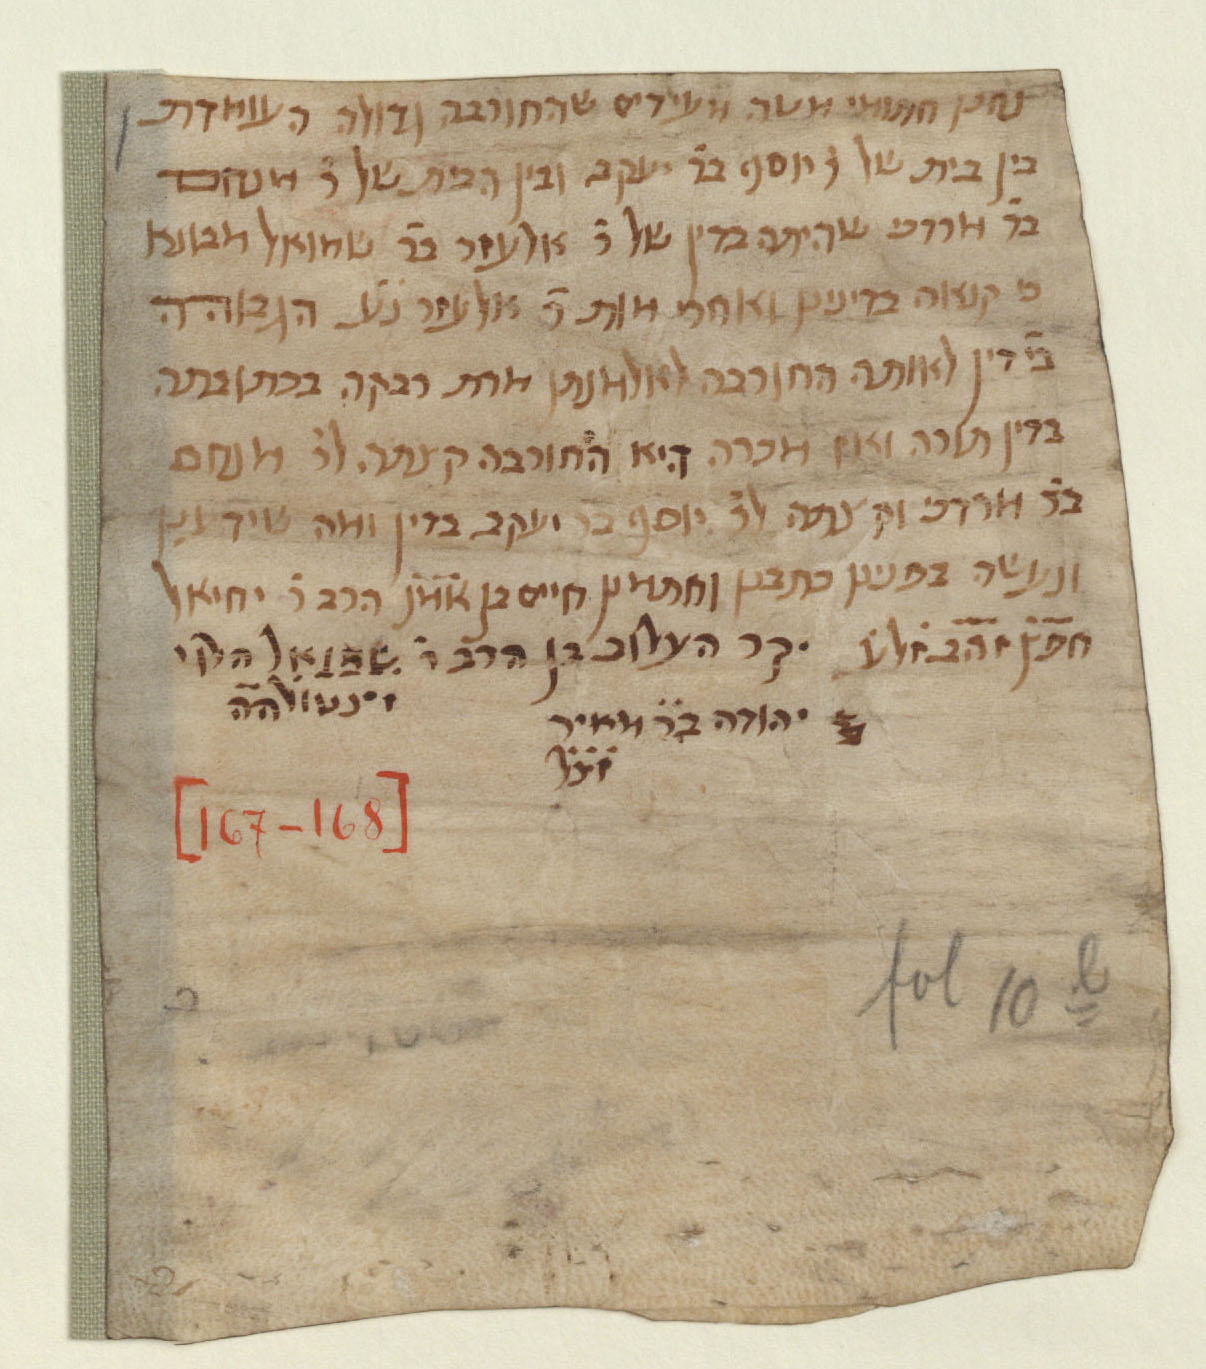 אנחנו חתומי מטה מעידים שהחורבה גדולה העומדת
בין בית של ר' יוסף בר יעקב ובין הבית של ר' מנחם
בר מרדכי שהיתה בדין של ר' אלעזר בר שמואל מבונא
כי קנאוה בדינינו ואחרי מות ר' אלעזר נ"ע הגבוהה
בי דין לאותה החורבה לאלמנתו מרת רבקה בכתובתה
בדין תורה ואז מכרה היא החורבה קצתה לר' מנחם
בר מרדכי וקצתה לר' יוסף בר יעקב בדין ומה שידענו
ונעשה בפנינו כתבנו וחתמנו חיים בן הרב ר' יחיאל
יקר העלוב בן הרב ר' שמואל הלוי
יהודה בר מאיר
זצ"ל
[167-168]
fol 10 b